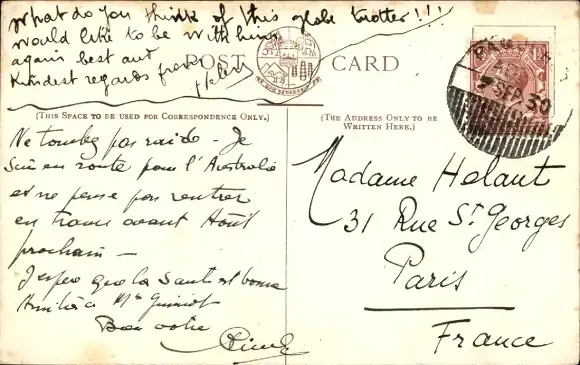 What do you think of this globe trotter!!!
would like to be with him
again best and
Kindest regards from
POST CARD
(THIS SPACE TO BE USED FOR CORRESPONDENCE ONLY.)
Ne tombez pas raide - Je
suis en route pour l'Australie
et ne pense pas rentrer
en avant Août
prochain -
J'espère que la Santé est bonne
Amitiés à Mr
Bien votre
(THE ADDRESS ONLY TO BE
WRITTEN HERE.)
Madame Helant
31 Rue St. Georges
Paris
France
SEP 30